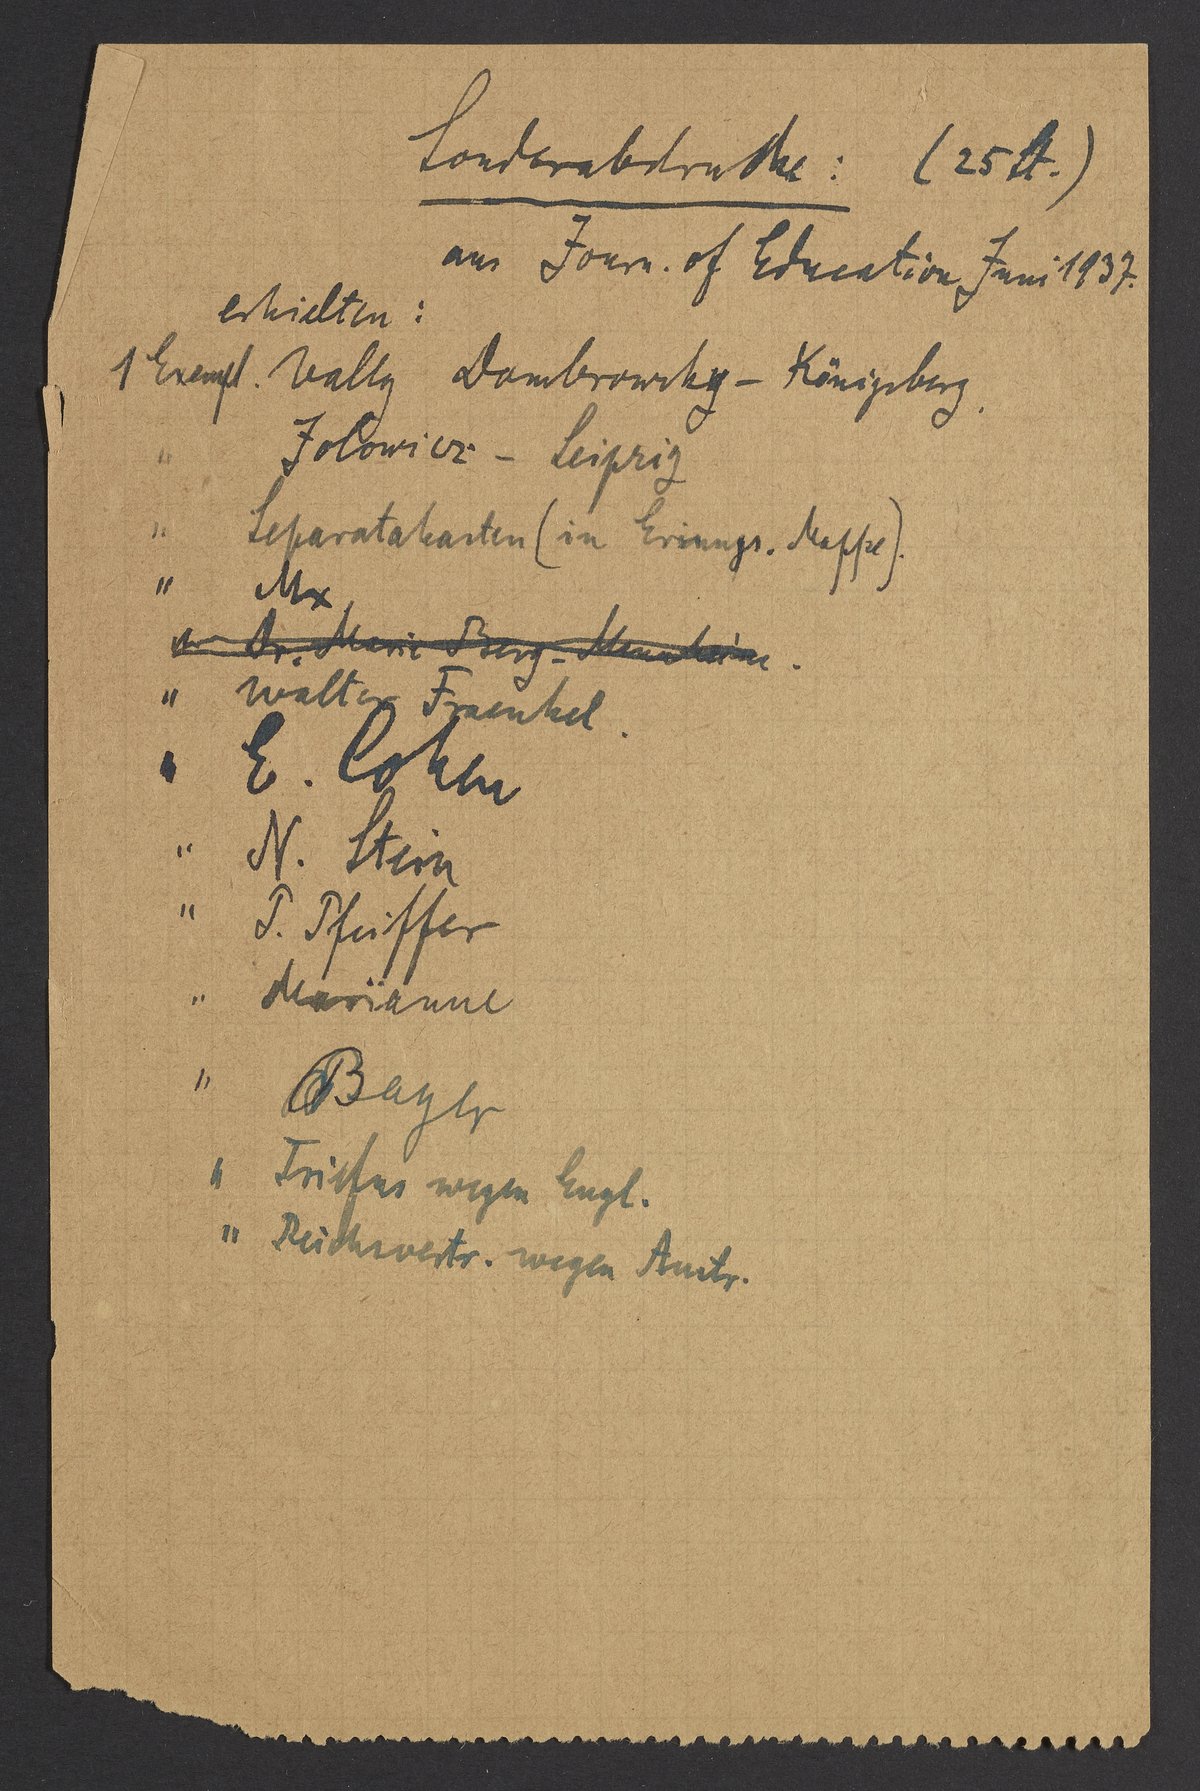 Sonderabdrucke: (25 St.)
aus Journ. of Education, Juni 1937.
erhielten:
1 Exempl. Wally Dombrowsky - Königsberg.
" Jolowicz - Leipzig
" Separatakasten (in Erinngs. Mappe).
" Mx
" Dr. Marie Berg - Mannheim.
" Walter Fraenkel.
" E. Cohen
" N. Stein
" P. Pfeiffer
" Marianne
" Bayer
" wegen Engl.
" Reichsvertr. wegen Austr.